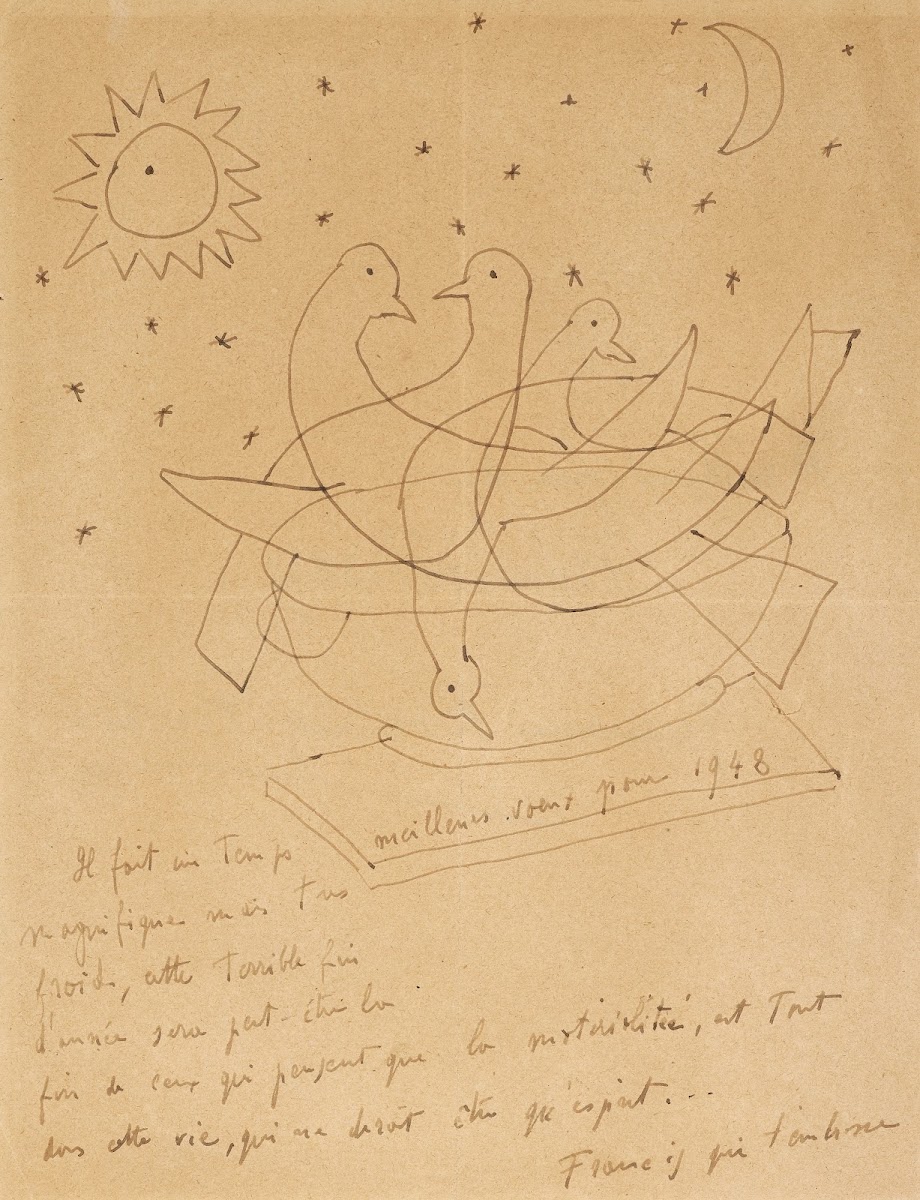 meilleurs voeux pour 1948
Il fait un Temps
magnifique mais très
froid, cette Terrible fin
d'année sera peut-être la
fin de ceux qui pensent que la matérialitée, est Tout
dans cette vie, qui ne devrait être qu'esprit...
Francis qui t'embrasse